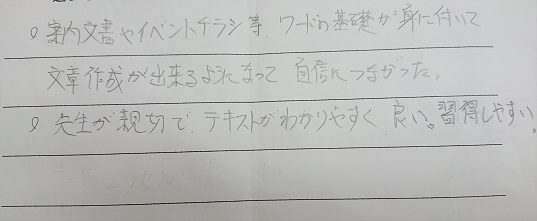 ○ 案内文書やイベントチラシ等、ワードの基礎が身に付いて
文章作成が出来るようになって 自信につながった。
○ 先生が親切で、テキストがわかりやすく 良い。習得しやすい。